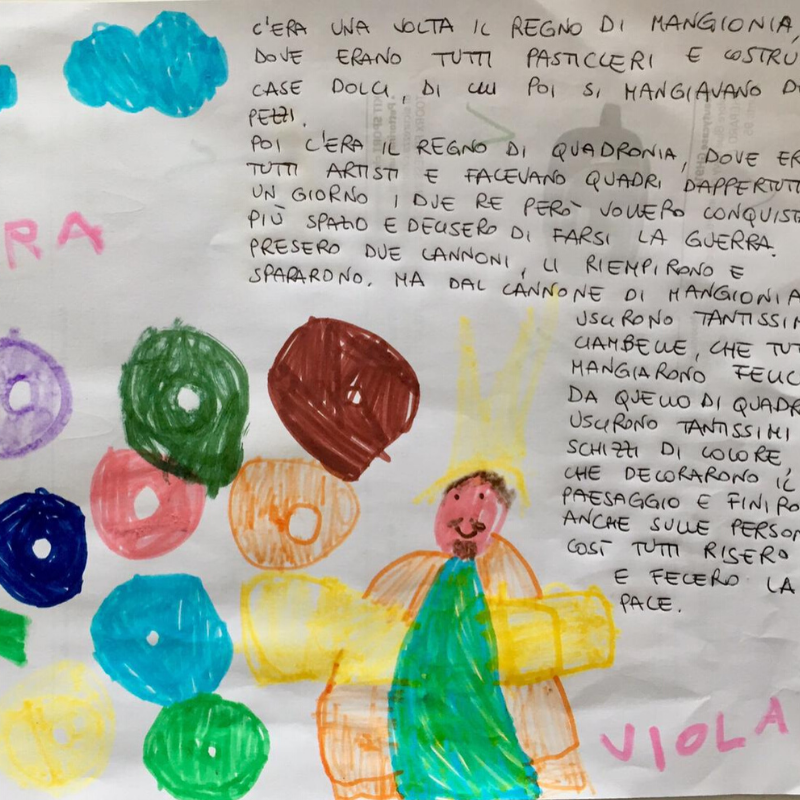 C'ERA UNA VOLTA IL REGNO DI MANGIONIA,
DOVE ERANO TUTTI PASTICCERI E COSTRU
CASE DOLCI, DI CUI POI SI MANGIAVANO D
PEZZI.
POI C'ERA IL REGNO DI QUADRONIA, DOVE ER
TUTTI ARTISTI E FACEVANO QUADRI DAPPERTUTT
UN GIORNO I DUE RE PERÒ VOLLERO CONQUISTA
PIÙ SPAZIO E DECISERO DI FARSI LA GUERRA.
PRESERO DUE CANNONI, LI RIEMPIRONO E
SPARARONO. MA DAL CANNONE DI MANGIONIA
USCIRONO TANTISSIM
CIAMBELLE, CHE TUT
MANGIARONO FELIC
DA QUELLO DI QUADR
USCIRONO TANTISSIMI
SCHIZZI DI COLORE,
CHE DECORARONO IL
PAESAGGIO E FINIRO
ANCHE SULLE PERSON
COSÌ TUTTI RISERO
E FECERO LA
PACE.
RA
VIOLA